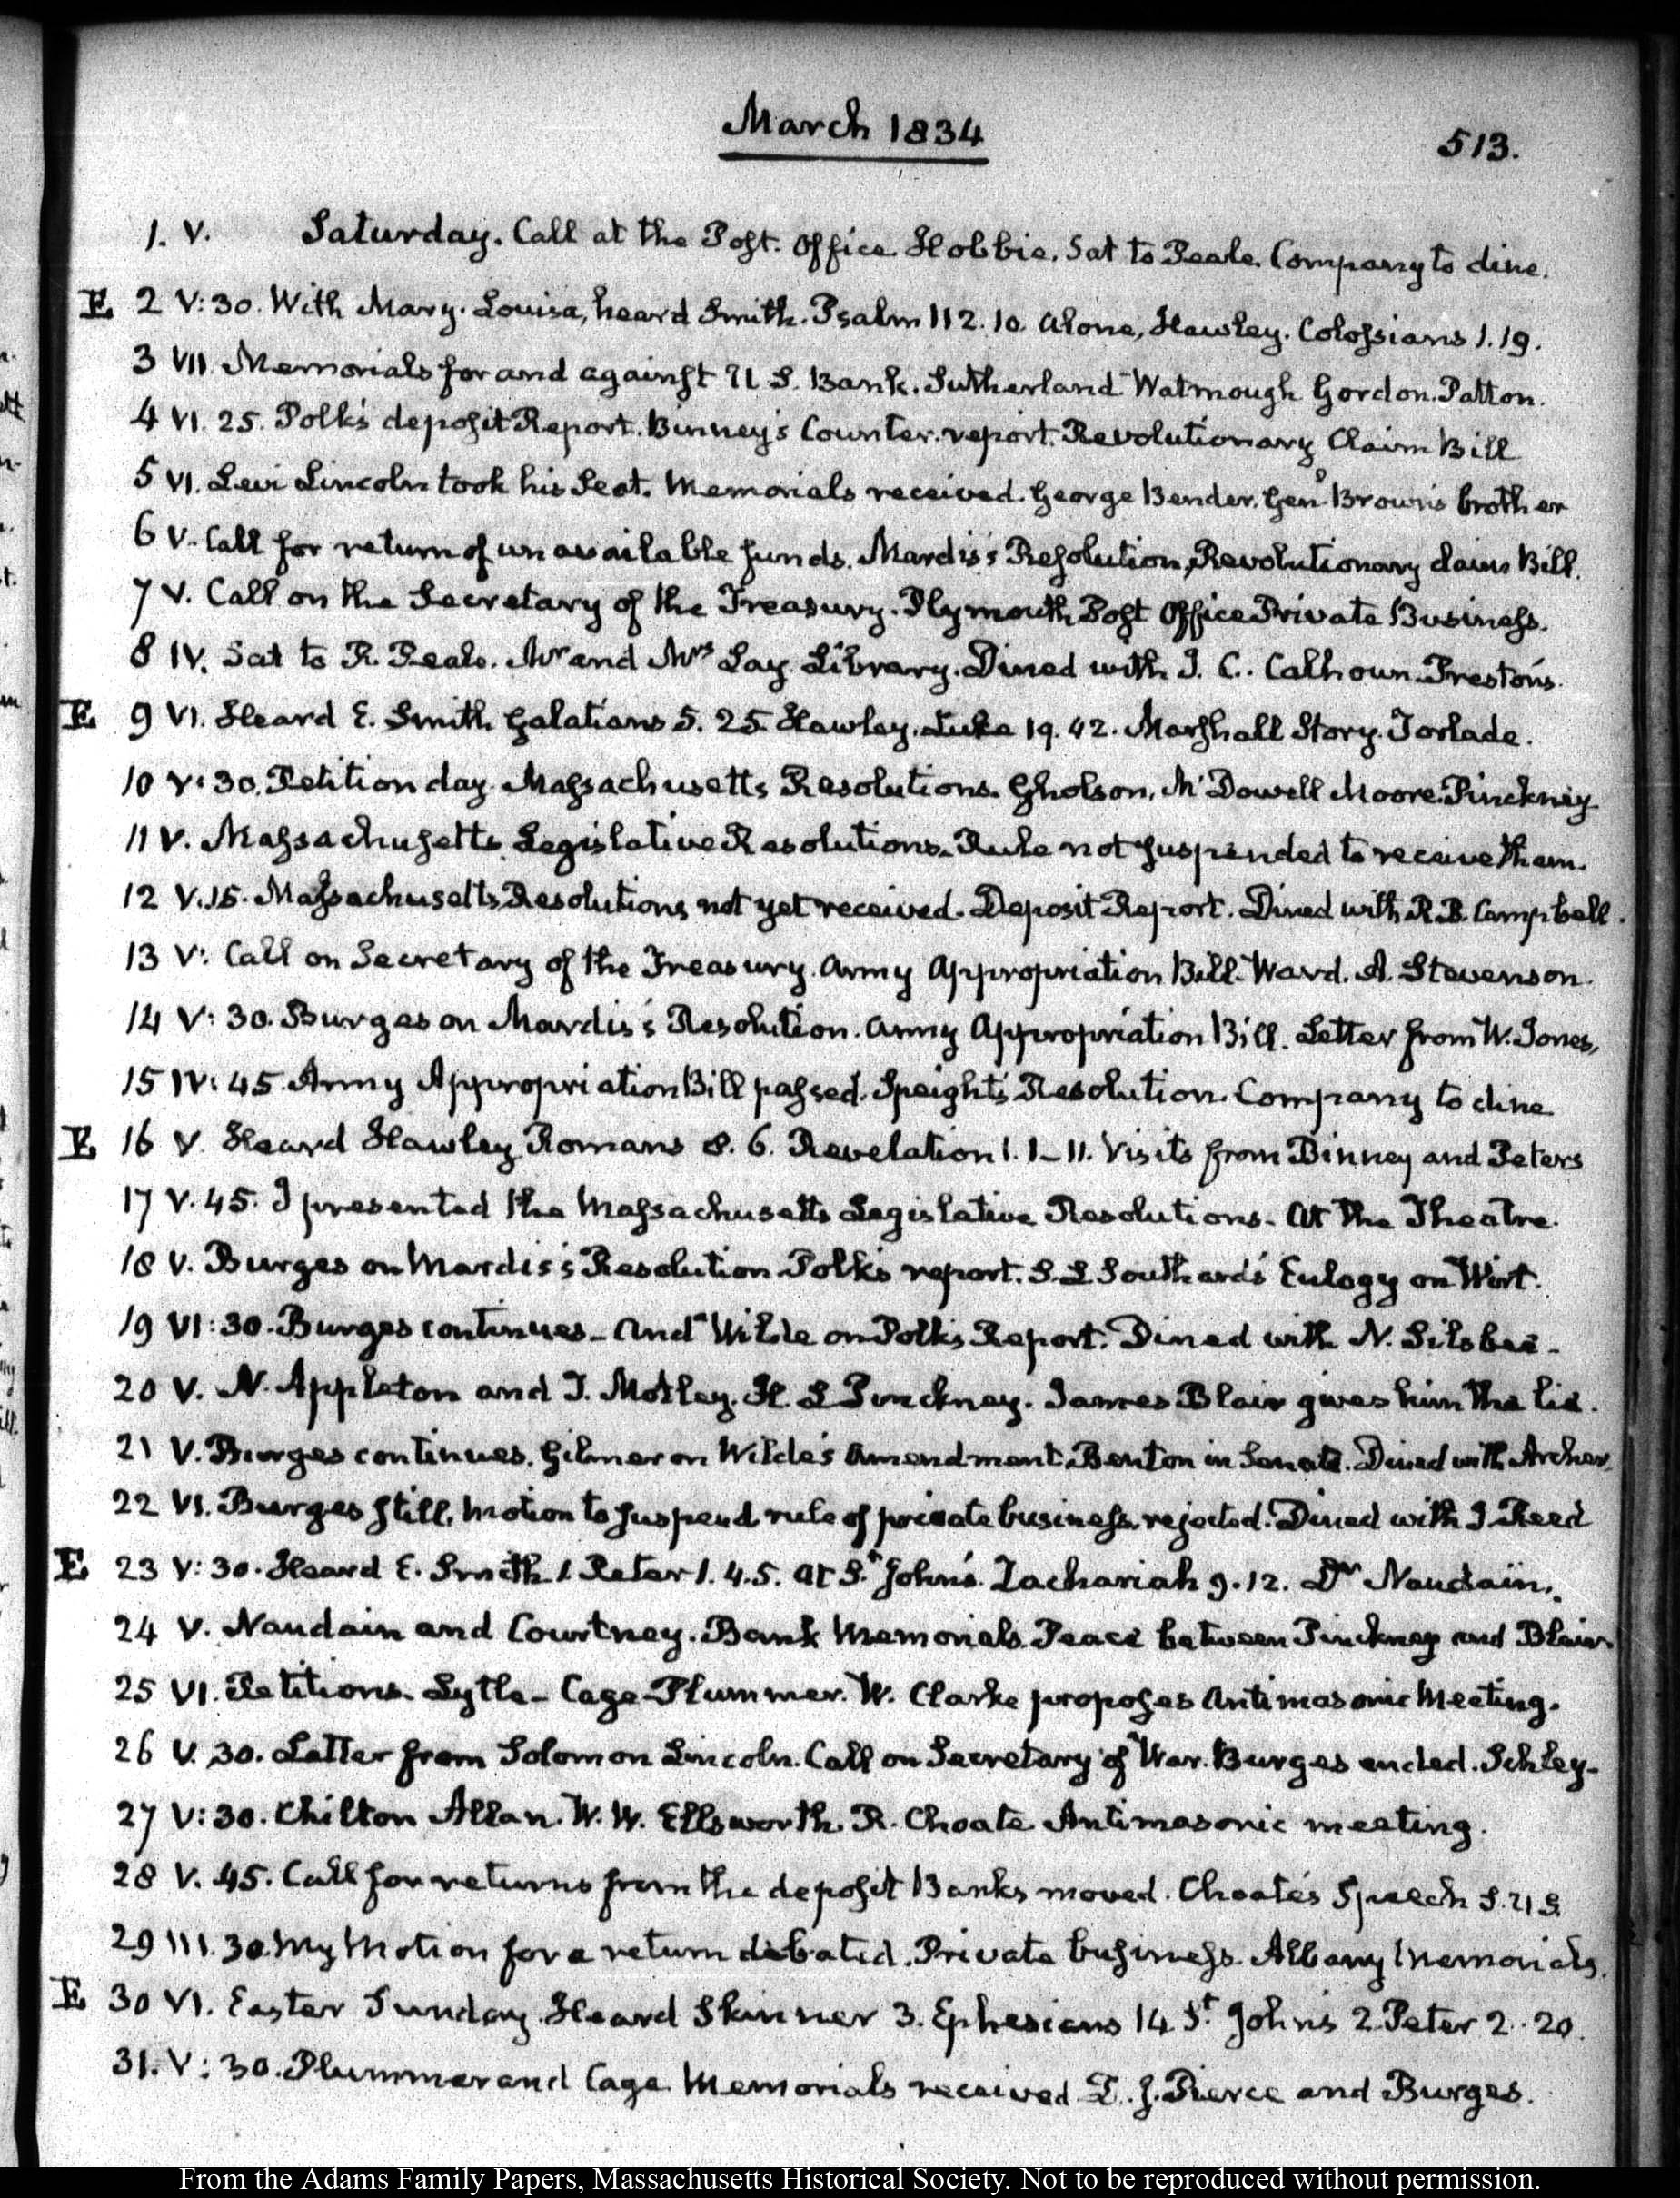 March 1834
513.
1. V. Saturday. Call at the Post. Office Hobbie. Sat to Peale. Company to dine.
E 2 V:30. With Mary. Louisa, heard Smith. Psalm 112. 10. Alone, Hawley. Colossians 1. 19.
3 VII. Memorials for and against U S. Bank. Sutherland Watmough Gordon. Patton.
4 VI. 25. Polk's deposit Report. Binney's Counter. report. Revolutionary Claim Bill
5 VI. Levi Lincoln took his Seat. Memorials received. George Bender. Genl Brown's brother
6 V. Call for return of unavailable funds. Mardis's Resolution, Revolutionary claims Bill.
7 V. Call on the Secretary of the Treasury. Plymouth Post Office Private Business.
8 IV. Sat to R. Peale. Mr and Mrs Lay. Library. Dined with J. C. Calhoun. Preston's.
E 9 VI. Heard E. Smith Galatians 5. 25. Hawley. Luke 19. 42. Marshall Story. Torlade.
10 V:30. Petition day. Massachusetts Resolutions. Gholson, McDowell Moore. Pinckney
11 V. Massachusetts Legislative Resolutions. Rule not suspended to receive them.
12 V.15. Massachusetts Resolutions not yet received. Deposit Report. Dined with R. B. Campbell.
13 V: Call on Secretary of the Treasury. Army Appropriation Bill. Ward. A. Stevenson.
14 V: 30. Burges on Mardis's Resolution. Army Appropriation Bill. Letter from W. Jones,
15 IV: 45. Army Appropriation Bill passed. Speight's Resolution. Company to dine
E 16 V. Heard Hawley Romans 8. 6. Revelation 1. 1–11. Visits from Binney and Peters
17 V. 45. I presented the Massachusetts Legislative Resolutions. At the Theatre.
18 V. Burges on Mardis's Resolution Polk's report. S. L Southard's Eulogy on Wirt.
19 VI:30. Burges continues – And Wilde on Polk's Report. Dined with N. Silsbee –
20 V. N. Appleton and T. Motley. H. L Pinckney. James Blair gives him the lie.
21 V. Burges continues. Gilmer on Wilde's Amendment. Benton in Senate. Dined with Archer.
22 VI. Burges still. Motion to suspend rule of private business rejected. Dined with J Reed
E 23 V:30. Heard E. Smith 1 Peter 1. 4. 5. At St John's. Zachariah 9. 12. Dr Naudain.
24 V. Naudain and Courtney. Bank Memorials. Peace between Pinckney and Blair.
25 VI. Petitions. Lytle – Cage – Plummer. W. Clarke proposes Antimasonic Meeting.
26 V. 30. Letter from Solomon Lincoln. Call on Secretary of War. Burges ended. Schley –
27 V:30. Chilton Allan. W. W. Ellsworth. R. Choate. Antimasonic meeting.
28 V. 45. Call for returns from the deposit Banks moved. Choate's Speech
29 III. 30. My Motion for a return debated. Private business. Albany Memorials.
E 30 VI. Easter Sunday. Heard Skinner 3. Ephesians 14 St John's 2 Peter 2. 20.
31. V: 30. Plummer and Cage. Memorials received. Pierce and Burges.
From the Adams Family Papers, Massachusetts Historical Society. Not to be reproduced without permission.